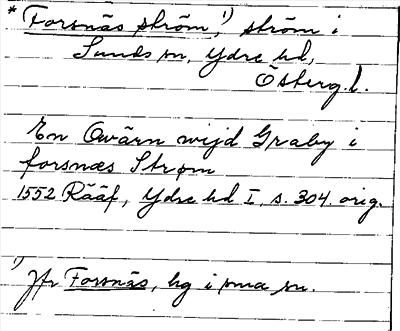 * Forsnäs ström,¹) ström i
Sunds sn, Ydre hd,
Österg.l.
En Qwärn wijd Graby i
forsnæs Strøm
1552 Rääf, Ydre hd I, s. 304. orig.
¹) Jfr Forsnäs, hg i sma sn.